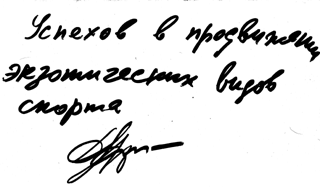 Успехов в продвижении
экзотических видов
спорта